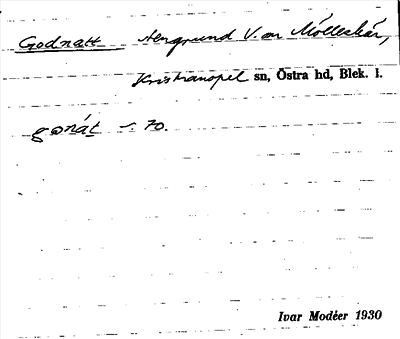 Godnatt Stengrund V. om Mölleskär,
Kristianopel sn, Östra hd, Blek. l.
gonát –: 70.
Ivar Modéer 1930